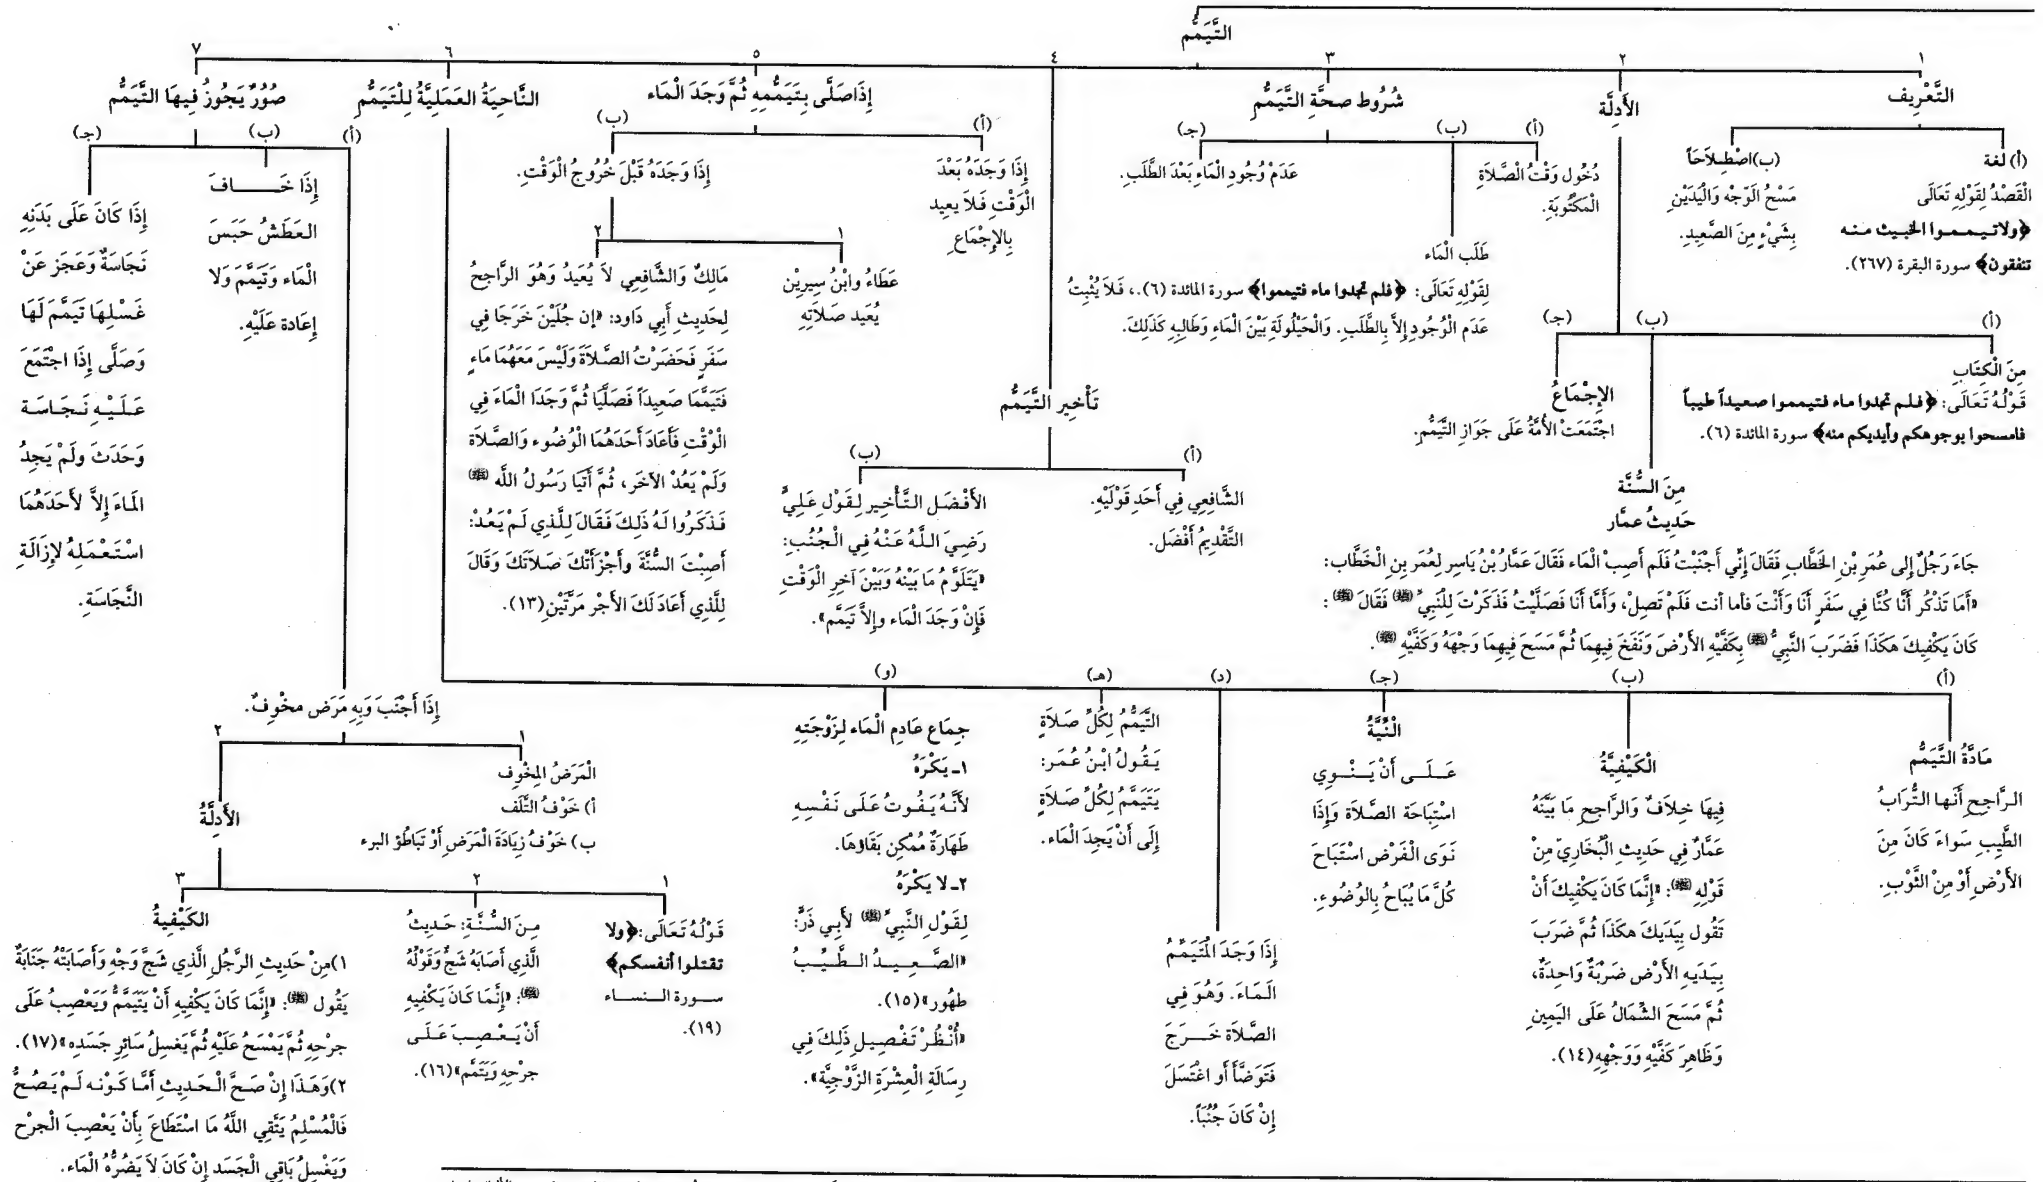 التَّيَمُّم
١
التَّعْرِيف
(أ) لغة
الْقَصْدُ لِقَوْلِهِ تَعَالَى
﴿ولاتيمموا الخبيث منه
تنفقون﴾ سورة البقرة (٢٦٧).
(ب) اصْطِلَاحَاً
مَسْحُ الْوَجْه وَالْيَدَيْنِ
بِشَيْءٍ مِنَ الصَّعِيدِ.
٢
الأَدِلَّة
(أ)
مِنَ الْكِتَابِ
قَوْلُهُ تَعَالَى: ﴿فلم تجدوا ماء فتيمموا صعيداً طيباً
فامسحوا بوجوهكم وأيديكم منه﴾ سورة المائدة (٦).
(ب)
مِنَ السُّنَّة
حَدِيثُ عمَّار
جَاءَ رَجُلٌ إِلى عُمَرِ بْنِ الخَطَّابِ فَقَالَ إِنِّي أَجْنَبْتُ فَلَم أَصِبْ الْماء فَقَالَ عَمَّارُ بْنُ يَاسِر لِعُمَر بِنِ الْخَطَّاب:
«أَمَا تَذْكُر أَنَّا كُنَّا فِي سَفَرٍ أَنَا وَأَنْتَ فأما أنت فَلَمْ تَصِلْ، وَأَمَّا أَنَا فَصَلَّيْتُ فَذَكَرْتَ لِلْنَبِيِّ ﷺ فَقَالَ ﷺ :
كَانَ يَكْفِيكَ هكَذَا فَضَرَبَ النَّبِيُّ ﷺ بِكَفَّيْهِ الأَرْضَ وَنَفَخَ فِيهِمَا ثُمَّ مَسَحَ فِيهِمَا وَجْهَهُ وَكَفَّيْهِ ﷺ.
(جـ)
الإجْمَاعُ
اجْتَمَعَتْ الأُمَّةُ عَلَى جَوَازِ التَّيَمُّم.
٣
شُرُوط صحَّةِ التَّيَمُّم
(أ)
دُخُول وَقْتُ الْصَّلاَةِ
الْمَكْتُوبَةِ.
(ب)
طَلَب الْمَاء
لِقَوْلِهِ تَعَالَى: ﴿فلم تجدوا ماء فتيمموا﴾ سورة المائدة (٦).، فَلاَ يُثْبِتُ
عَدَم الْوُجُودِ إِلاَّ بِالطَّلَبِ. وَالْحَيْلُولَةِ بَيْنَ الْمَاءِ وَطَالِبِهِ كَذَلِكَ.
(جـ)
عَدَمْ وُجُودِ الْمَاءِ بَعْدَ الطَّلَبِ.
٤
تَأْخِير التَّيَمُّم
(أ)
الشَّافِعِي فِي أَحَدِ قَوْلَيْهِ.
التَّقْدِيمُ أَفْضَل.
(ب)
الأَفْضَل التَّأْخِير لِقَوْل عَلِيٍّ
رَضِيَ اللَّهُ عَنْهُ فِي الْجُنُبِ:
«يَتَلَوَّمُ مَا بَيْنَهُ وَبَيْنَ آخِرِ الْوَقْتِ
فَإِنْ وَجَدَ الْمَاء وإِلاَّ تَيَمَّم».
٥
إِذَاصَلَّى بِتَيَمُّمِهِ ثُمَّ وَجَدَ الْمَاء
(أ)
إِذَا وَجَدَهُ بَعْدَ
الْوَقْتِ فَلاَ يعيد
بِالإجْمَاعِ
(ب)
إِذَا وَجَدَهُ قَبْلَ خُرُوجُ الْوَقْتِ.
١
عَطَاءُ وابْنُ سِيرِيْن
يُعَيد صَلاَتِهِ
٢
مَالِكٌ وَالشَّافِعِي لاَ يُعَيدُ وَهُوَ الرَّاجِحُ
لِحَدِيثِ أَبِي دَاود: «إن جُلَيْنَ خَرَجَا فِي
سَفَرٍ فَحَضَرْتُ الصَّلاَةَ وَلَيْسَ مَعَهُمَا مَاءٍ
فَتَيَمَّمَا صَعِيداً فَصَلَّيَا ثُمَّ وَجَدَا الْمَاءَ فِي
الْوَقْتِ فَأَعَادَ أَحَدَهُمَا الْوُضُوء وَالصَّلاَةَ
وَلَمْ يَعُدْ الآخَر، ثُمَّ أَتَيَا رَسُولُ اللَّه ﷺ
فَذَكَرُوا لَهُ ذَلِكَ فَقَالَ لِلَّذِي لَمْ يَعُدْ:
أَصِبْتَ السُّنَّةَ وأَجْزَأَتْكَ صَلاَتَكَ وَقَالَ
لِلَّذِي أَعَادَ لَكَ الأَجْرُ مَرَّتَيْنِ(١٣).
٦
النَّاحِيَةُ العَمَلِيَّةُ لِلْتَيَمُّمِ
(أ)
مَادَّةُ التَّيَمُّمِ
الرَّاجِح أَنَّها التُّرَابُ
الطَّيِب سَواءَ كَانَ مِنَ
الأَرْضِ أَوْ مِنْ الثَّوْبِ.
(ب)
الْكَيْفِيَّةُ
فِيهَا خِلاَفٌ وَالرَّاجِح مَا بَيَّنَهُ
عَمَّارُ فِي حَدِيثِ الْبُخَارِيّ مِنْ
قَوْلِهِ ﷺ: «إِنَّمَا كَانَ يَكْفِيكَ أَنْ
تَقُول بِيَدَيكَ هكَذَا ثُمَّ ضَرَبَ
بِيَدَيهِ الأَرْض ضَرْبَةً وَاحِدَةً،
ثُمَّ مَسَحَ الشِّمَالُ عَلَى اليَمِينِ
وَظَاهِرَ كَفَّيْهِ وَوَجْهِهِ(١٤).
(جـ)
الْنِّيَّةُ
عَلَى أَنْ يَنْوِي
اسْتِبَاحَة الصَّلاَة وَإِذَا
نَوَى الْفَرْض اسْتَبَاحَ
كُلَّ مَا يُبَاحُ بِالْوُضُوءِ.
(د)
إِذَا وَجَدَ الْمُتَيَمِّمُ
الْمَاءَ. وَهُوَ فِي
الصَّلاَة خَرَجَ
فَتَوَضَّأَ أَو اغْتَسَلَ
إِنْ كَانَ جُنُبَاً.
(هـ)
التَّيَمُّمُ لِكُلِّ صَلاَةٍ
يَقُولُ ابْنُ عُمَر:
يَتَيَمَّمُ لِكُلِّ صَلاَةٍ
إِلَى أَنْ يَجِدَ الْمَاء.
(و)
جمَاع عَادِم الْمَاء لِزَوْجَتِهِ
١ـ يَكْرَهُ
لأَنَّهُ يَفُوتُ عَلَى نَفْسِهِ
طَهَارَةٌ مُمْكِن بَقَاؤهَا.
٢ـ لا يَكْرَهُ
لِقَوْلِ النَّبِيِّ ﷺ لأَبِي ذَرٍّ:
«الصَّعِيدُ الطَّيِّبُ
طهُور»(١٥).
«أُنْظُرْ تَفْصِيل ذَلِكَ فِي
رِسَالَةِ الْعِشْرَةِ الزَّوْجِيَّة».
٧
صُوَرٌ يَجُوزُ فِيهَا التَّيَمُّم
(أ)
إِذَا أَجْنَب وَبِهِ مَرَض مخْوِفٌ.
١
الْمَرَضُ المِخْوِف
أ) خَوْفُ التَّلَف
ب) خَوْفُ زِيَادَةَ الْمَرَضِ أَوْ تَبَاطُؤ البرء
٢
الأَدِلَّةُ
١
قَوْلُهُ تَعَالَى: ﴿ولا
تقتلوا أنفسكم﴾
سورة النساء
(١٩).
٢
مِنَ السُّنَّةِ: حَدِيثُ
الَّذِي أَصَابَهُ شَجُّ وَقَوْلُهُ
ﷺ: «إِنَّمَا كَانَ يَكْفِيهِ
أَنْ يَعْصِبَ عَلَى
جرْحِهِ وَيَتَمَّم»(١٦).
٣
الكَيْفِيةُ
١)مِنْ حَدِيثِ الرَّجُلِ الَّذِي شَجَّ وَجْهِ وَأَصَابَتْهُ جَنَابَةٌ
يَقُول ﷺ: «إِنَّمَا كَانَ يَكْفِيهِ أَنْ يَتَيَمَّمُّ وَيَعْصِبُ عَلَى
جرْحِهِ ثُمَّ يَمْسَحُ عَلَيْهِ ثُمَّ يَغسِلُ سَائِرِ جَسَدِه»(١٧).
٢)وَهَذَا إِنْ صَحَّ الْحَدِيثِ أَمَّا كَوْنه لَمْ يَصُحُّ
فَالْمُسْلِمُ يَتَّقِي اللَّهُ مَا اسْتَطَاعَ بِأَنْ يَعْصِبَ الْجرْح
وَيَغْسِلُ بَاقِي الْجَسَد إِنْ كَانَ لاَ يَضُرُّهُ الْمَاء.
(ب)
إِذَا خَافَ
العَطَشُ حَبَسَ
الْمَاء وَتَيَمَّمَ وَلا
إِعَادة عَلَيْهِ.
(جـ)
إِذَا كَانَ عَلَى بَدَنِهِ
نَجَاسَةٌ وَعَجَزَ عَنْ
غَسْلِهَا تَيَمَّمَ لَهَا
وَصَلَّى إِذَا اجْتَمَعَ
عَلَيْهِ نَجَاسَة
وَحَدَثَ وَلَمْ يَجِدُ
الْمَاءَ إِلاَّ لأَحَدَهُمَا
اسْتَعْمَلِهُ لإزَالَةِ
النَّجَاسَةِ.